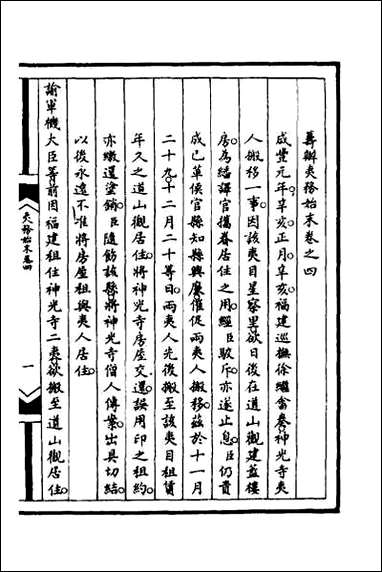 籌辦夷務始末卷之四
咸豐元年辛亥正月辛亥福建巡撫徐繼畬奏神光寺夷
人搬移一事因該夷目星察里欲日後在道山觀建蓋樓
房為繙譯官攜眷居住之用經臣駁斥亦遂止息臣仍責
成已革侯官縣知縣興廉催促兩夷人搬移茲於十一月
二十九十二月二十等日兩夷人先後搬至該夷目租賃
年久之道山觀居住將神光寺房屋交還誤用印之租約
亦繳還塗銷臣隨飭該縣將神光寺僧人傳案出具切結
以後永遠不准將房屋租與夷人居住
諭軍機大臣等前因福建租住神光寺二夷欲搬至道山觀居住
夷務始末卷四
一